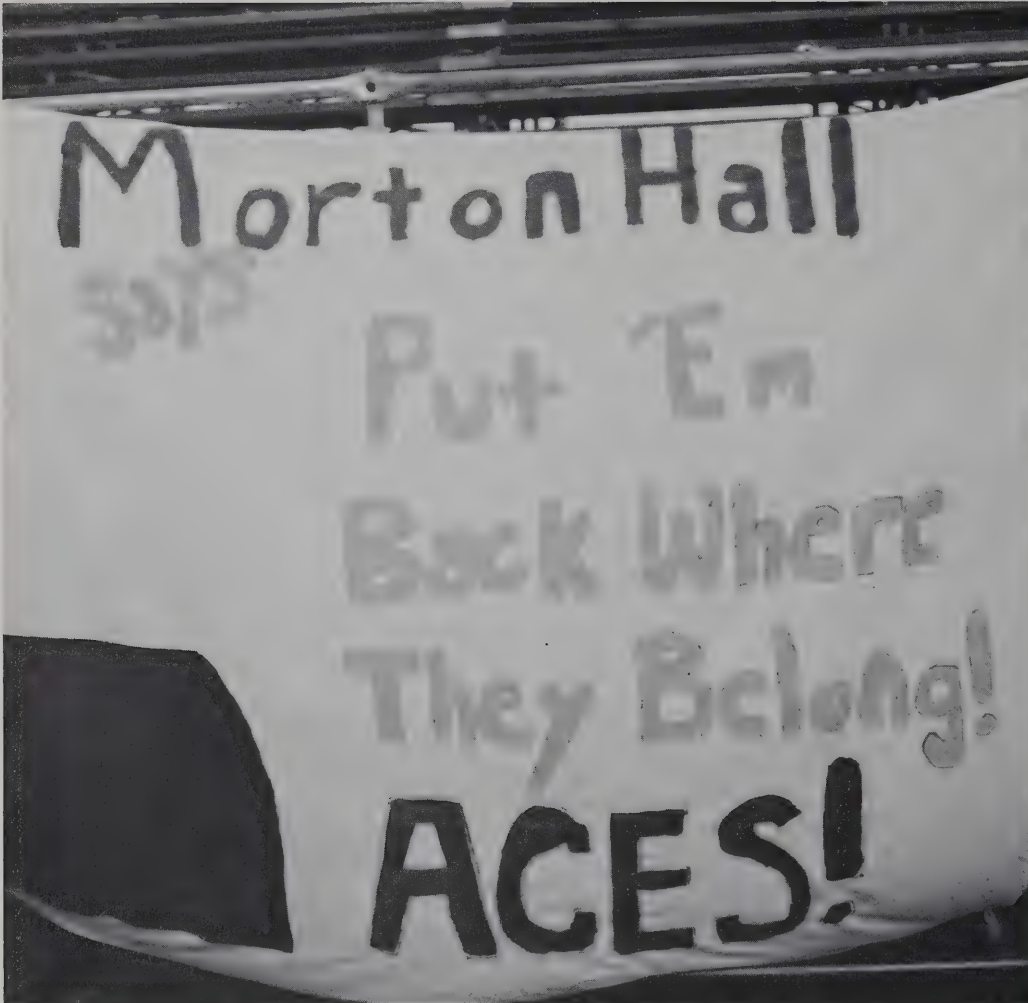 Morton Hall
says
Put 'Em
Back Where
They Belong!
ACES!